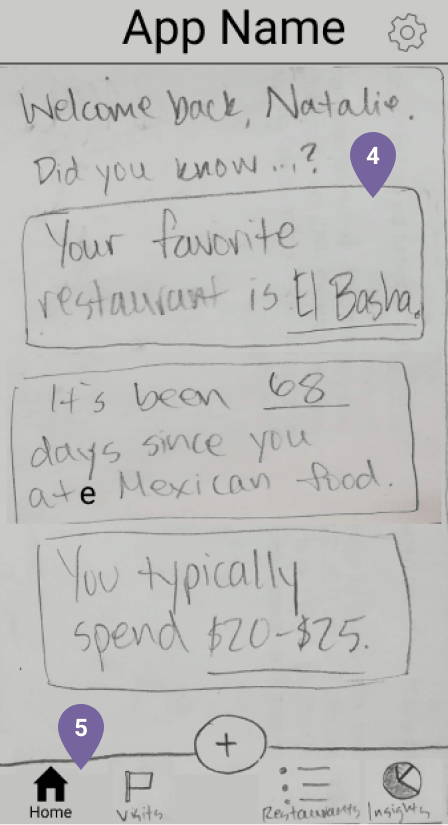 App Name
Welcome back, Natalie.
Did you know...?
4
Your favorite
restaurant is El Basha.
It's been 68
days since you
ate Mexican food.
You typically
spend $20-$25.
5
+
Home
Visits
Restaurants
Insights